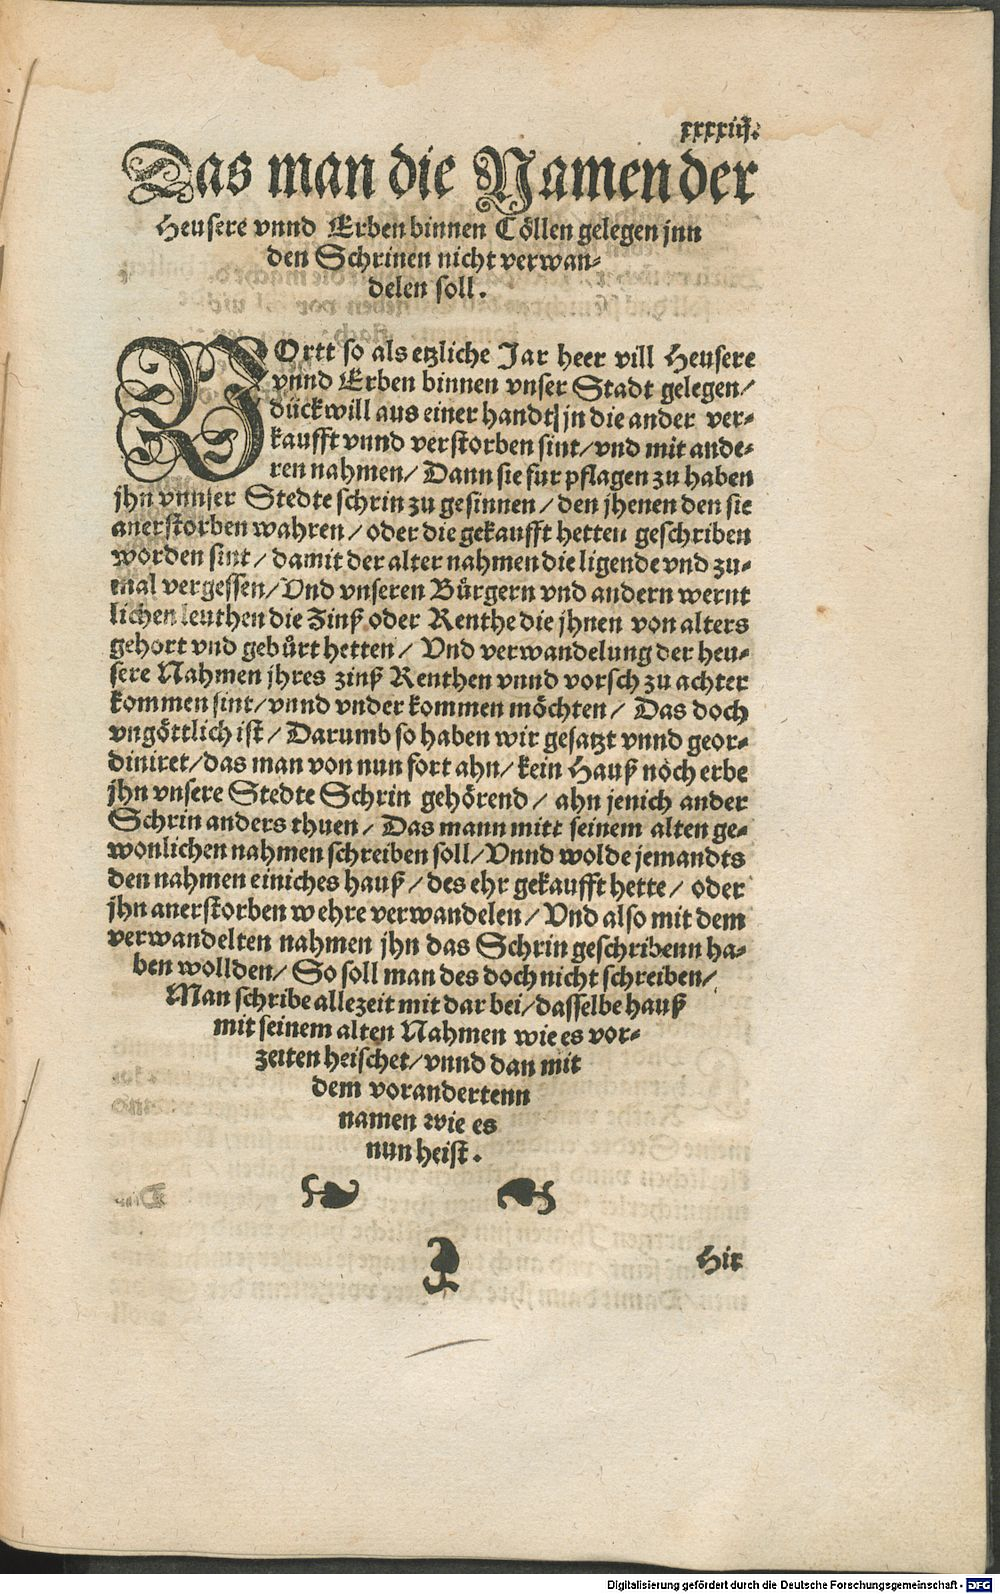 xxxxiij.
Das man die Namen der
Heusere vnnd Erben binnen Cöllen gelegen jnn
den Schrinen nicht verwan-
delen soll.
VOrtt so als etzliche Jar heer vill Heusere
vnnd Erben binnen vnser Stadt gelegen/
dückwill aus einer handt jn die ander ver-
kaufft vnnd verstorben sint/ vnd mit ande-
ren nahmen/ Dann sie fur pflagen zu haben
jhn vnnser Stedte schrin zu gesinnen/ den jhenen den sie
anerstorben wahren/ oder die gekaufft hetten geschriben
worden sint/ damit der alter nahmen die ligende vnd zu-
mal vergessen/ Vnd vnseren Bürgern vnd andern wernt
lichen leuthen die Zinß oder Renthe die jhnen von alters
gehort vnd gebůrt hetten/ Vnd verwandelung der heu-
sere Nahmen jhres zinß Renthen vnnd vorsch zu achter
kommen sint/ vnnd vnder kommen möchten/ Das doch
vngöttlich ist/ Darumb so haben wir gesatzt vnnd geor-
diniret/ das man von nun fort ahn/ kein Hauß noch erbe
jhn vnsere Stedte Schrin gehörend/ ahn jenich ander
Schrin anders thuen/ Das mann mitt seinem alten ge-
wonlichen nahmen schreiben soll/ Vnnd wolde jemandts
den nahmen einiches hauß/ des ehr gekaufft hette/ oder
jhn anerstorben wehre verwandelen/ Vnd also mit dem
verwandelten nahmen jhn das Schrin geschribenn ha-
ben wollden/ So soll man des doch nicht schreiben/
Man schribe allezeit mit dar bei/ dasselbe hauß
mit seinem alten Nahmen wie es vor-
zeiten heischet/ vnnd dan mit
dem vorandertenn
namen wie es
nun heist.
Hir
Digitalisierung gefördert durch die Deutsche Forschungsgemeinschaft - DFG